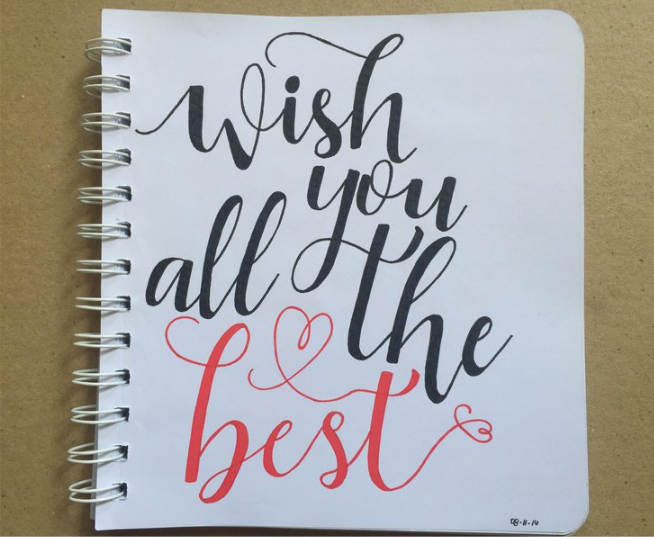 wish
you
all the
best
08-11-14